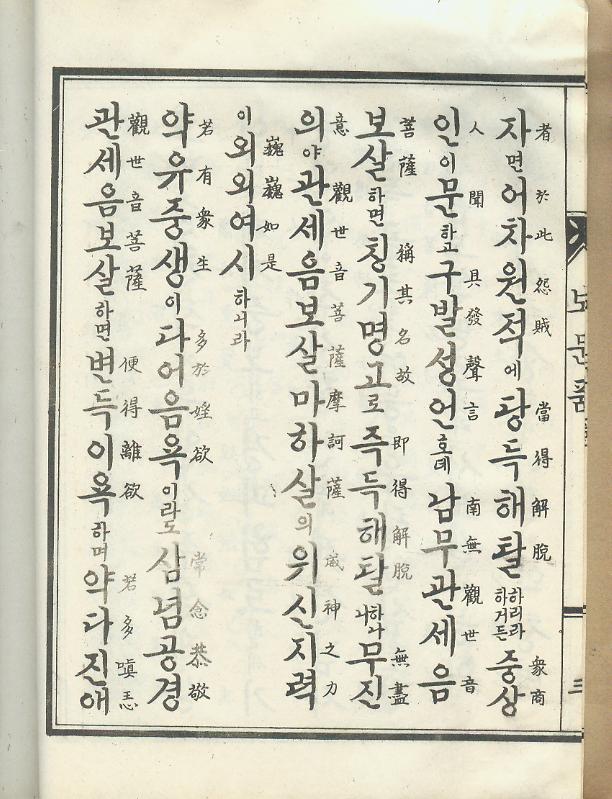 보문품
三
者於此怨賊 當得解脫 衆商
자면어차원적에당득해탈하리라하거든중상
人聞 具發聲言 南無觀世音
인이문하고구발성언호데남무관세음
菩薩 稱其名故 即得解脫 無盡
보살하면칭기명고로즉득해탈하나니무진
意 觀世音菩薩摩訶薩 威神之力
의야관세음보살마하살의위신지력
巍巍如是
이외외여시하니라
若有衆生 多於婬欲 常念恭敬
약유중생이다어음욕이라도삼념공경
觀世音菩薩 便得離欲 若多嗔恚
관세음보살하면변득이욕하며약다진애